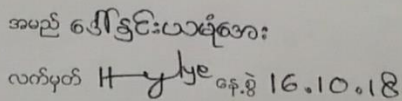 အမည် ဒေါ်နှင်းယမုံအေး
လက်မှတ် နေ့စွဲ 16.10.18